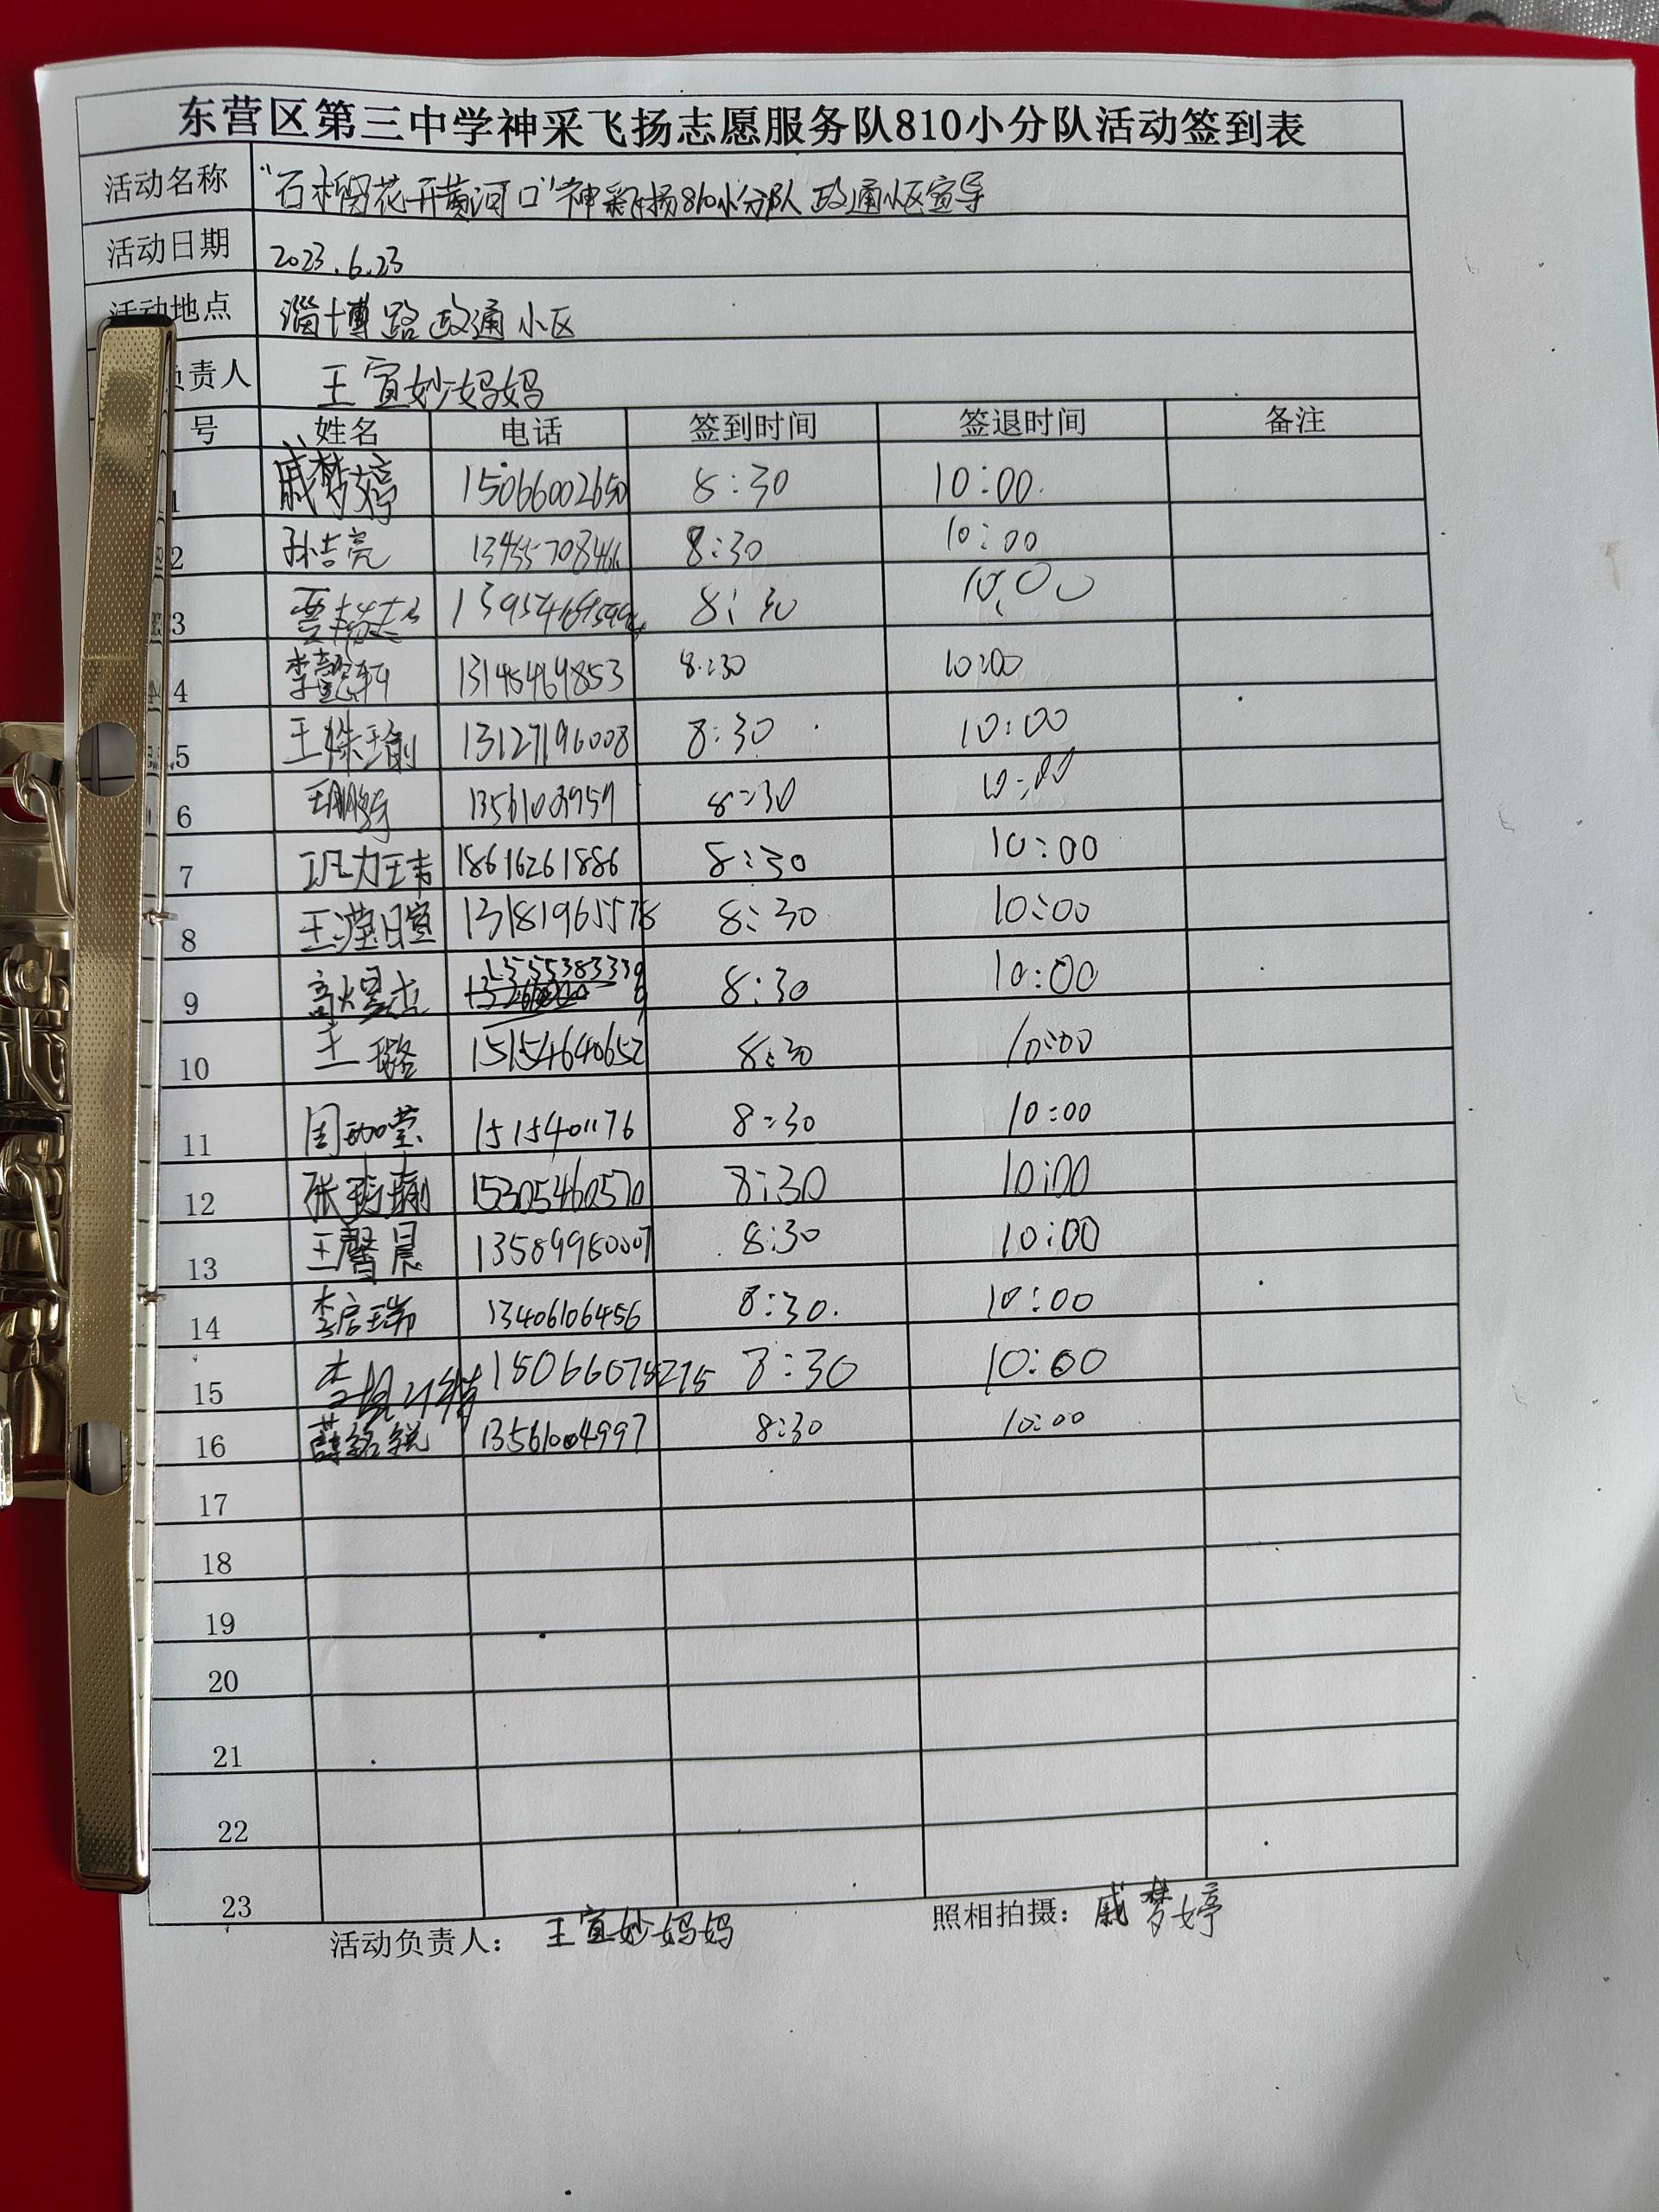 东营区第三中学神采飞扬志愿服务队810小分队活动签到表
活动名称 “石榴花开黄河口”神彩飞扬810小分队政通小区宣导
活动日期 2023.6.23
活动地点 淄博路政通小区
负责人 王宣妙妈妈
号 姓名 电话 签到时间 签退时间 备注
1 戚梦婷 15066002650 8:30 10:00
2 孙吉亮 13455708466 8:30 10:00
3 8:30 10:00
4 李懿轩 13145469853 8:30 10:00
5 王姝瑜 13127196008 8:30 10:00
6 8:30 10:00
7 18616261886 8:30 10:00
8 王滢暄 8:30 10:00
9 高煜杰 13555383339 8:30 10:00
10 王璐 15154640652 8:30 10:00
11 8:30 10:00
12 15305460570 8:30 10:00
13 王馨晨 13589980007 8:30 10:00
14 李启瑞 13406106456 8:30 10:00
15 8:30 10:00
16 薛铭锐 13561004997 8:30 10:00
17
18
19
20
21
22
23
活动负责人： 王宣妙妈妈 照相拍摄： 戚梦婷